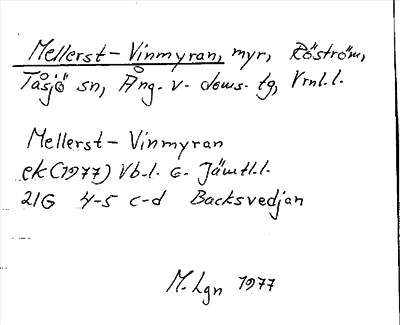 Mellerst-Vinmyran, myr, Röström,
Tåsjö sn, Ång. v. doms. tg, Vrnl.l.
Mellerst-Vinmyran
ek (1977) Vb.l. o. Jämtl.l.
21G 4-5 c-d Backsvedjan
M. Lgn 1977